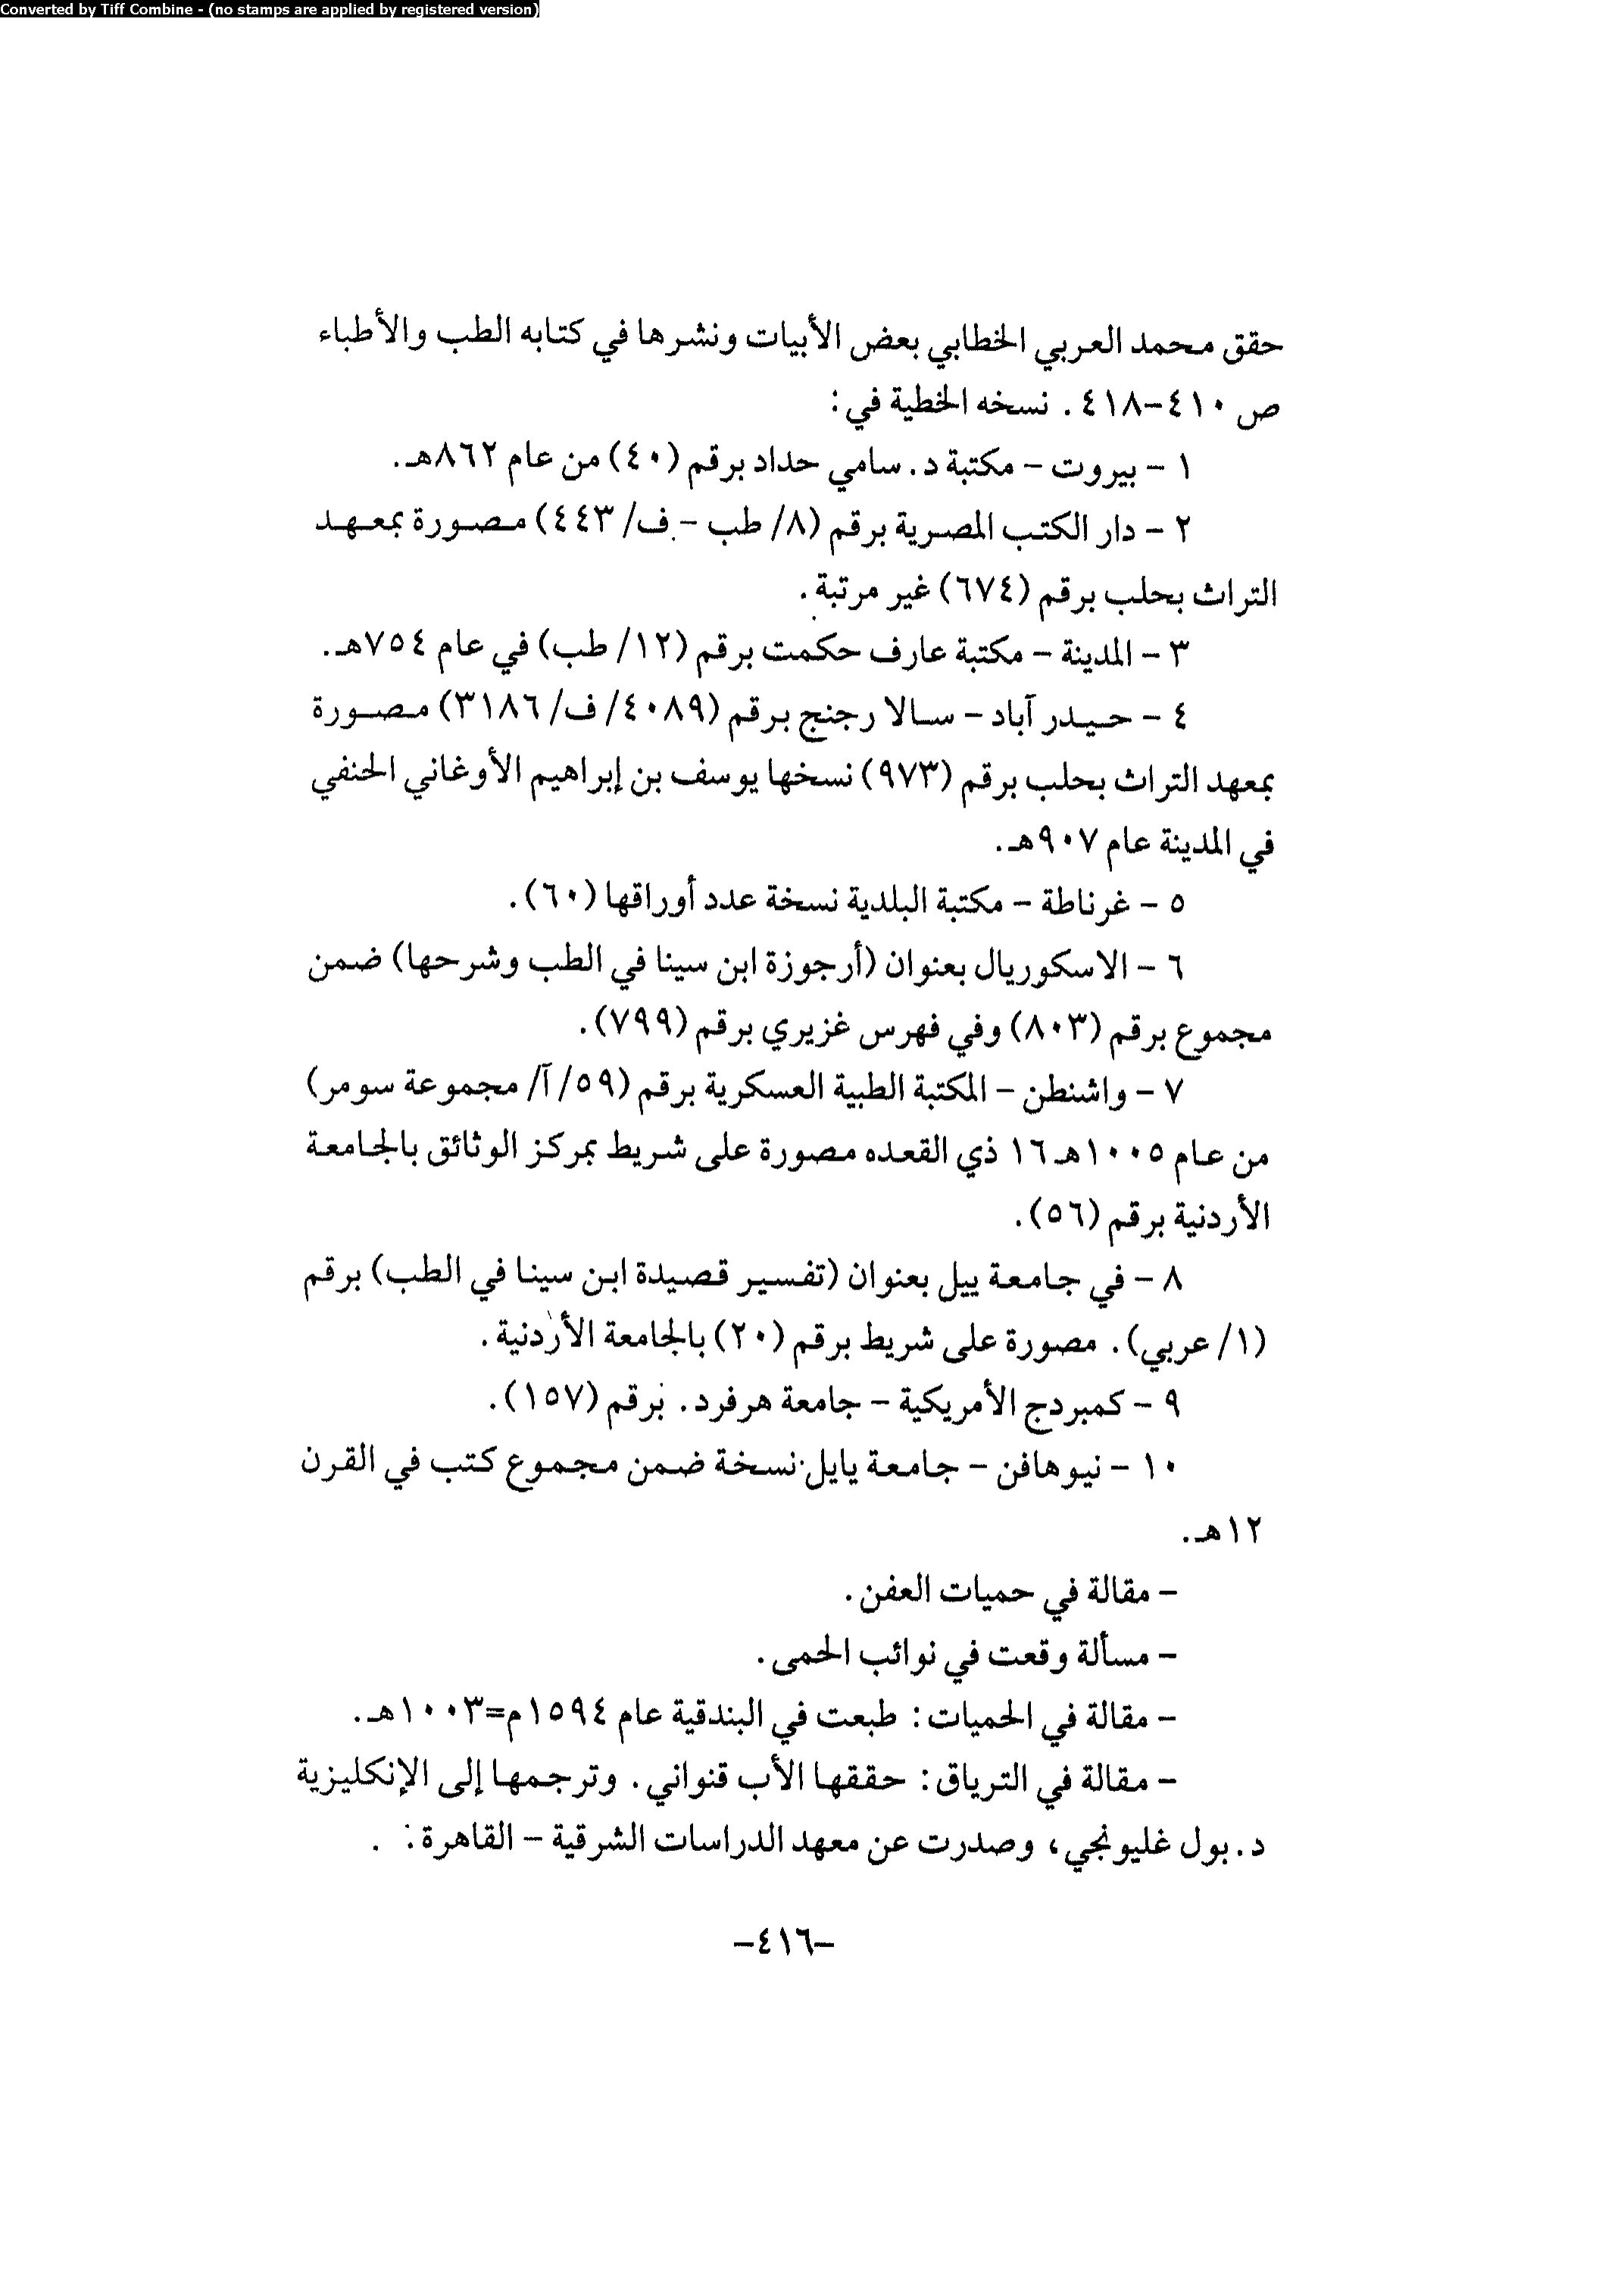 Converted by Tiff Combine - (no stamps are applied by registered version)
حقق محمد العربي الخطابي بعض الأبيات ونشرها في كتابه الطب والأطباء
ص ٤١٠-٤١٨. نسخه الخطية في:
١ - بيروت - مكتبة د. سامي حداد برقم (٤٠) من عام ٨٦٢هـ.
٢ - دار الكتب المصرية برقم (٨/ طب - ف/ ٤٤٣) مصورة بمعهد
التراث بحلب برقم (٦٧٤) غير مرتبة.
٣ - المدينة - مكتبة عارف حكمت برقم (١٢/ طب) في عام ٧٥٤هـ.
٤ - حيدر آباد - سالا رجنج برقم (٤٠٨٩/ ف/ ٣١٨٦) مصورة
بمعهد التراث بحلب برقم (٩٧٣) نسخها يوسف بن إبراهيم الأوغاني الحنفي
في المدينة عام ٩٠٧هـ.
٥ - غرناطة - مكتبة البلدية نسخة عدد أوراقها (٦٠).
٦ - الاسكوريال بعنوان (أرجوزة ابن سينا في الطب وشرحها) ضمن
مجموع برقم (٨٠٣) وفي فهرس غزيري برقم (٧٩٩).
٧ - واشنطن - المكتبة الطبية العسكرية برقم (٥٩/ آ/ مجموعة سومر)
من عام ١٠٠٥هـ ١٦ ذي القعده مصورة على شريط بمركز الوثائق بالجامعة
الأردنية برقم (٥٦).
٨ - في جامعة ييل بعنوان (تفسير قصيدة ابن سينا في الطب) برقم
(١/ عربي). مصورة على شريط برقم (٢٠) بالجامعة الأردنية.
٩ - كمبردج الأمريكية - جامعة هرفرد. برقم (١٥٧).
١٠ - نيوهافن - جامعة يايل نسخة ضمن مجموع كتب في القرن
١٢هـ.
- مقالة في حميات العفن.
- مسألة وقعت في نوائب الحمى.
- مقالة في الحميات: طبعت في البندقية عام ١٥٩٤م=١٠٠٣هـ.
- مقالة في الترياق: حققها الأب قنواني. وترجمها إلى الإنكليزية
د. بول غليونجي، وصدرت عن معهد الدراسات الشرقية - القاهرة.
-٤١٦-